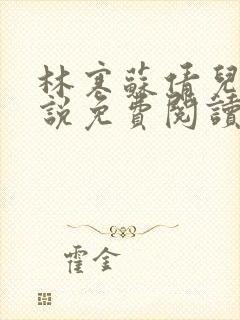 林寒蘇倩兒
說免費閱讀
霍金